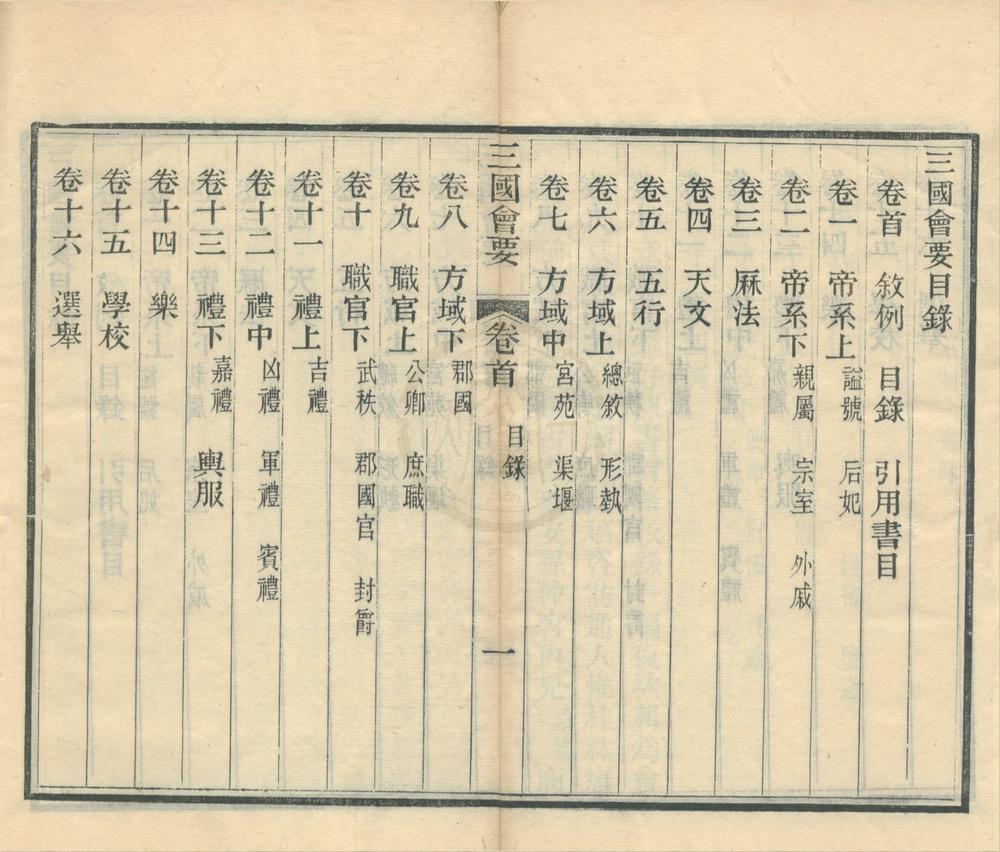 三國會要目錄
卷首 敘例 目錄 引用書目
卷一 帝系上 謚號 后妃
卷二 帝系下 親屬 宗室 外戚
卷三 厤法
卷四 天文
卷五 五行
卷六 方域上 總敘 形埶
卷七 方域中 宮苑 渠堰
三國會要 卷首 目錄 一
卷八 方域下 郡國
卷九 職官上 公卿 庶職
卷十 職官下 武秩 郡國官 封爵
卷十一 禮上 吉禮
卷十二 禮中 凶禮 軍禮 賓禮
卷十三 禮下 嘉禮 輿服
卷十四 樂
卷十五 學校
卷十六 選舉